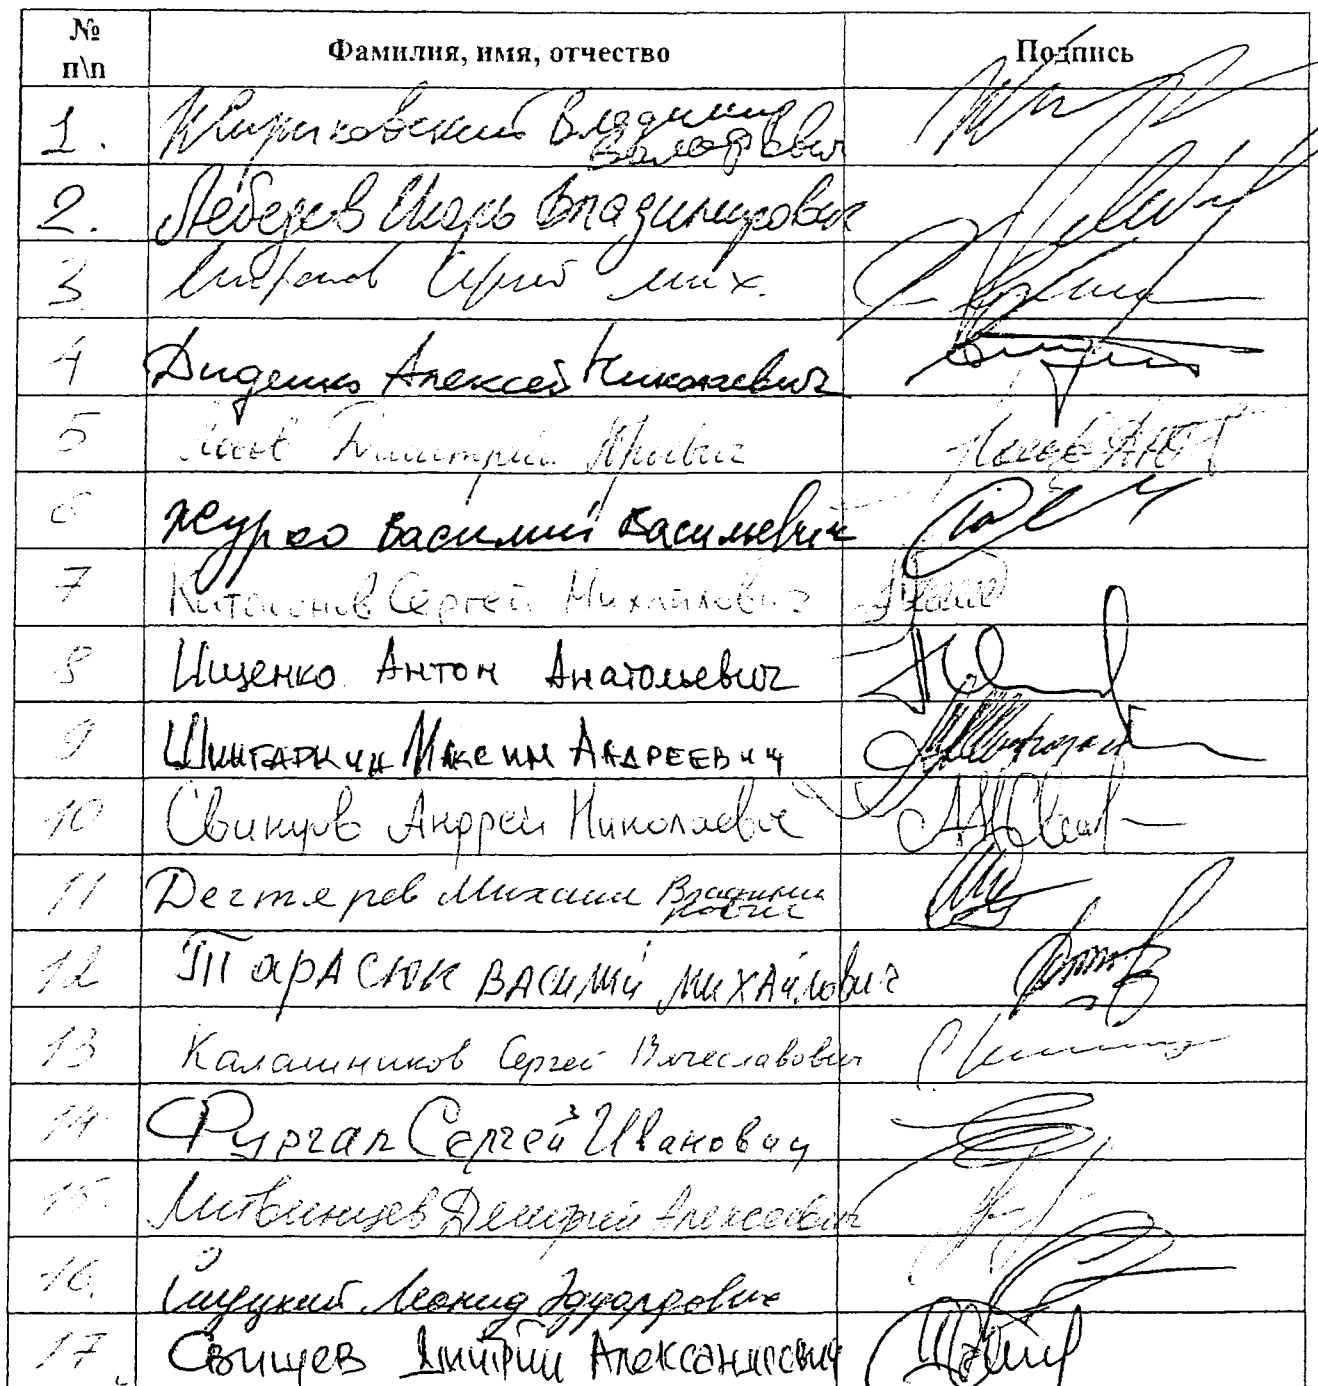 № п\п Фамилия, имя, отчество Подпись
1. Жириновский Владимир Вольфович
2. Лебедев Игорь Владимирович
3 Сергей мих.
4 Диденко Алексей Николаевич
5 Дмитрий Юрьевич
6 Журко Василий Васильевич
7 Катасонов Сергей Михайлович
8 Ищенко Антон Анатольевич
9 Шингаркин Максим Андреевич
10 Свинцов Андрей Николаевич
11 Дегтярев Михаил Владимирович
12 Тарасюк Василий Михайлович
13 Калашников Сергей Вячеславович
14 Фургал Сергей Иванович
15. Литвинцев Дмитрий Алексеевич
16. Слуцкий Леонид Эдуардович
17. Свищев Дмитрий Александрович